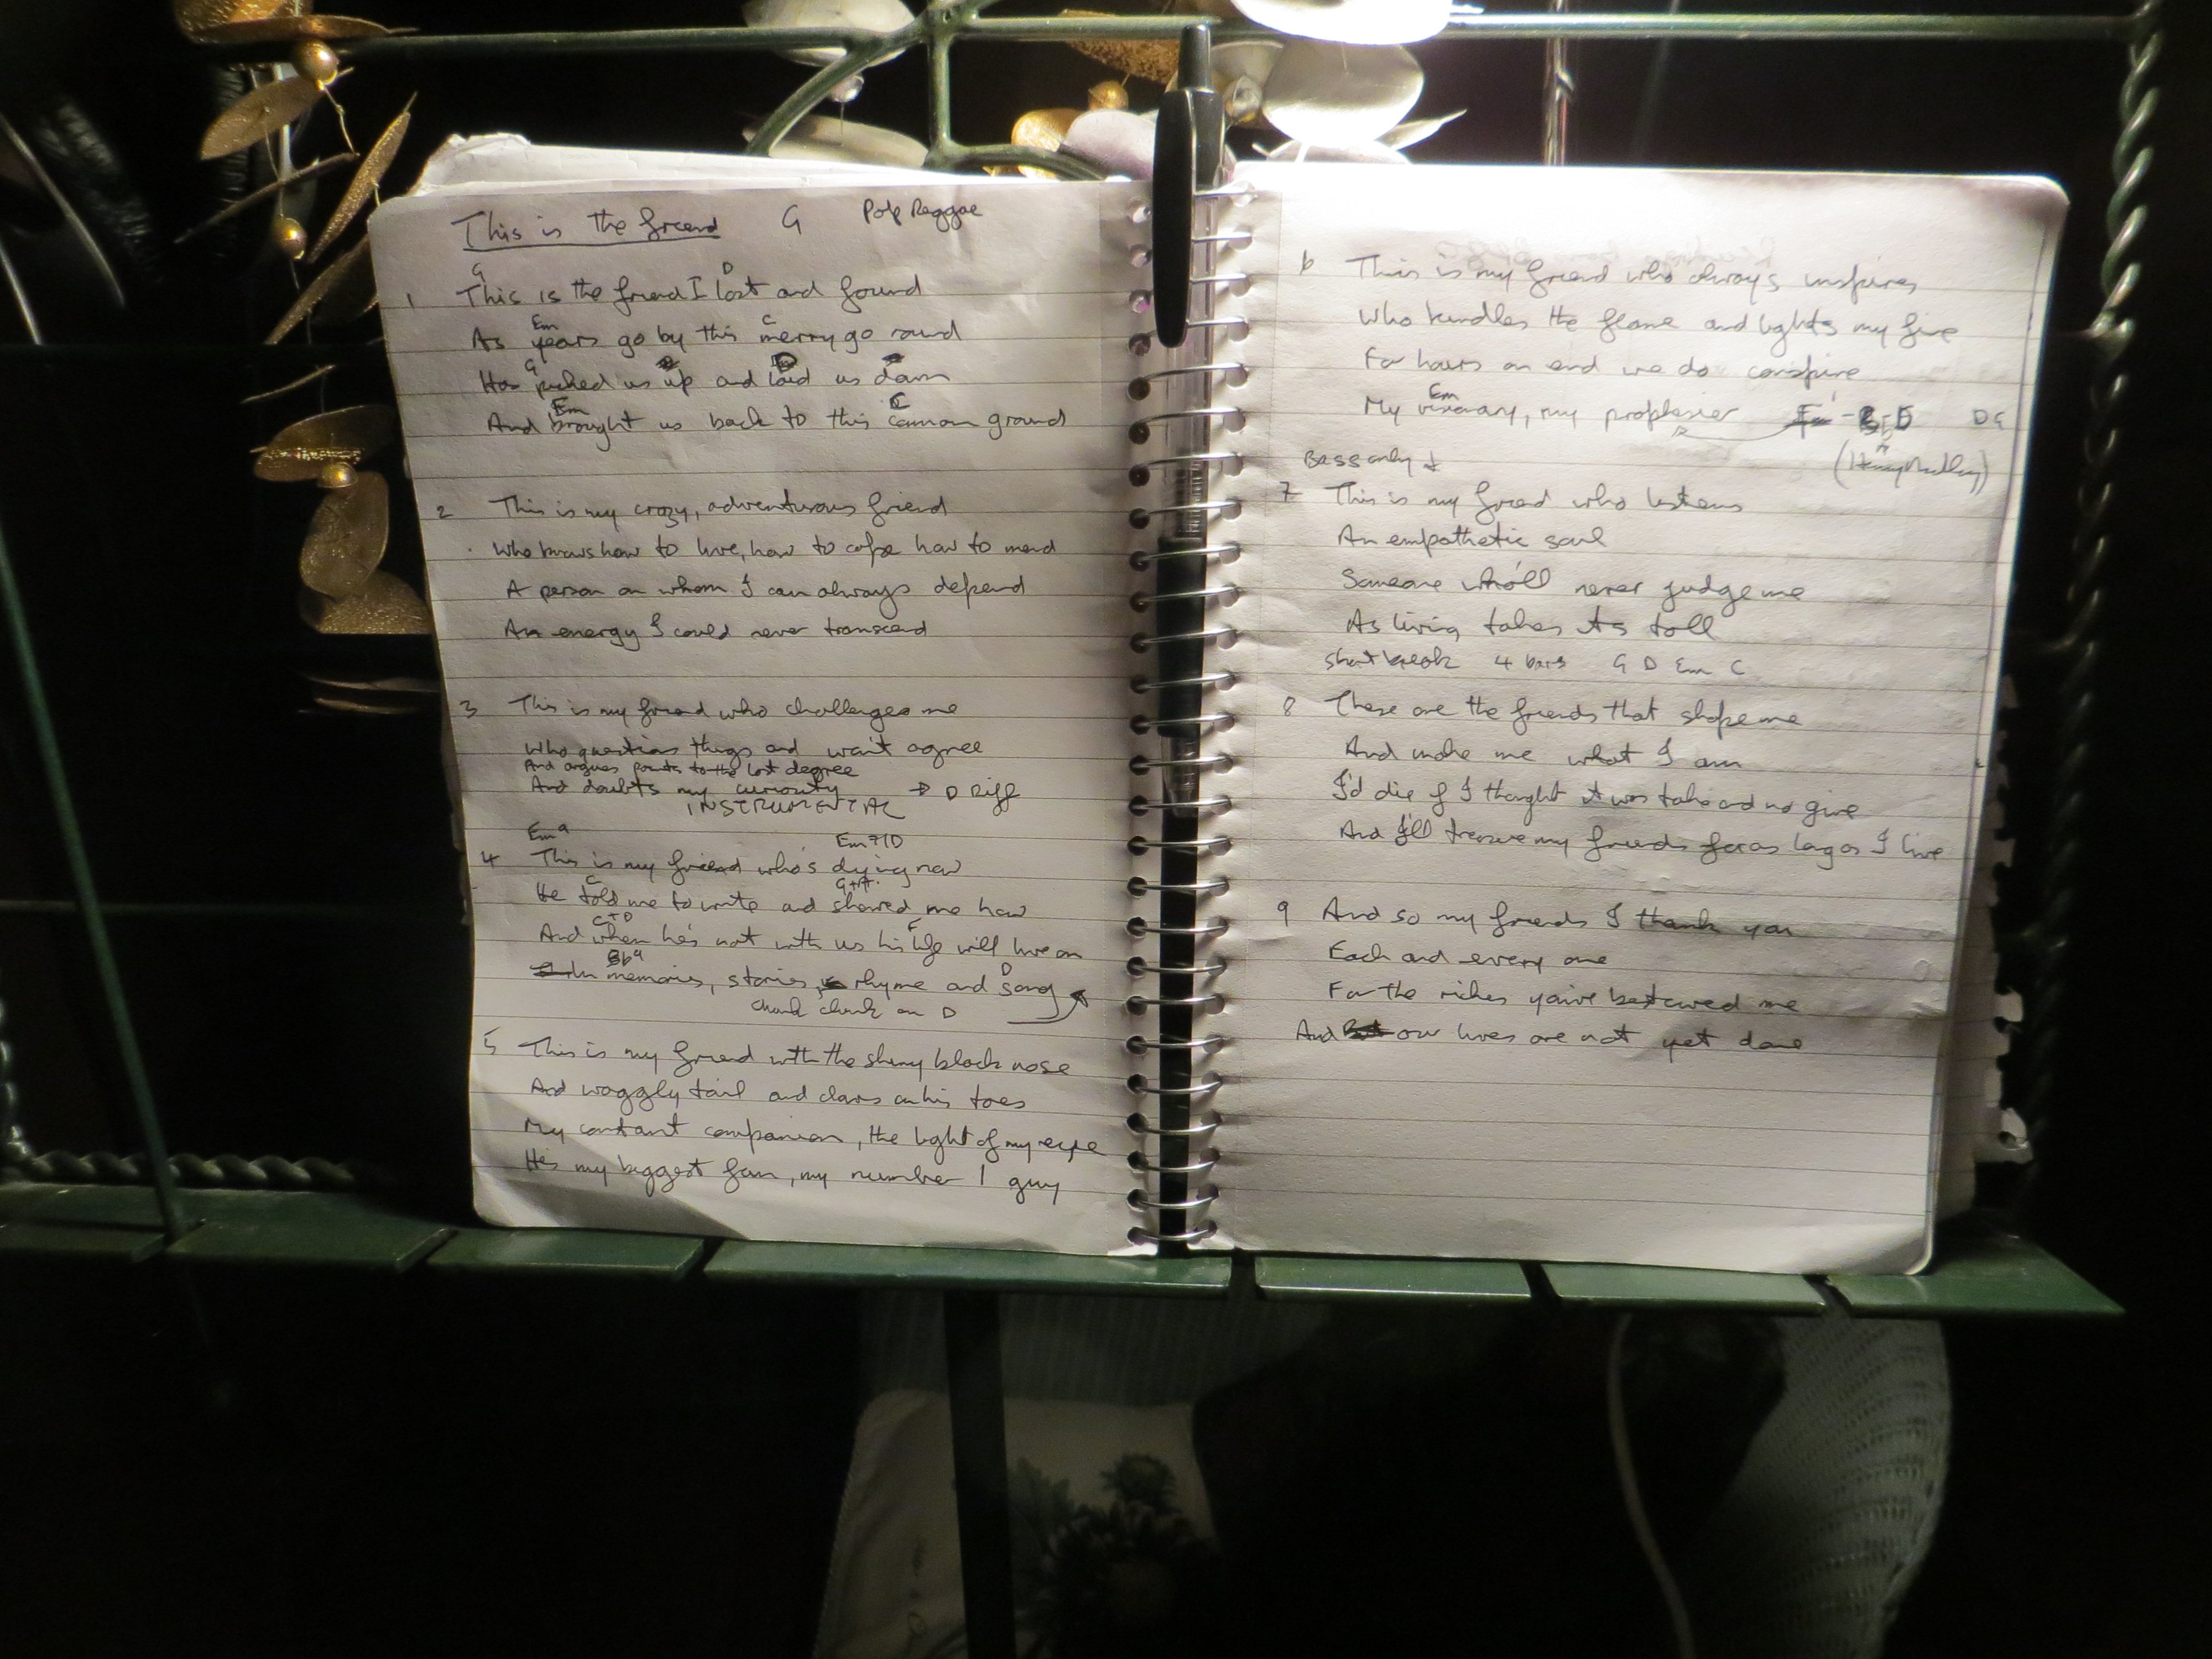 This is the friend G Pop Reggae
G D
1 This is the friend I lost and found
Em C
As years go by this merry go round
G D
Has picked us up and laid us down
Em C
And brought us back to this common ground
2 This is my crazy, adventurous friend
Who knows how to live, how to cope how to mend
A person on whom I can always depend
An energy I could never transcend
3 This is my friend who challenges me
Who questions things and won't agree
And argues points to the last degree
And doubts my curiosity → D Riff
INSTRUMENTAL
Em9 Em7/D
4 This is my friend who's dying now
C
He told me to write and showed me how
C+D F
And when he's not with us his life will live on
Bb9 D
In memories, stories, rhyme and song
chunk chunk on D
5 This is my friend with the shiny black nose
And waggly tail and claws on his toes
My constant companion, the light of my eye
He's my biggest fan, my number 1 guy
6 This is my friend who always inspires
Who kindles the flame and lights my fire
For hours on end we do conspire
Em
My visionary, my prophesier
Bass only
7 This is my friend who listens
An empathetic soul
Someone who'll never judge me
As living takes its toll
Short break 4 bars G D Em C
8 These are the friends that shape me
And make me what I am
I'd die if I thought it was take and no give
And I'll treasure my friends for as long as I live
9 And so my friends I thank you
Each and every one
For the riches you've bestowed me
And our lives are not yet done